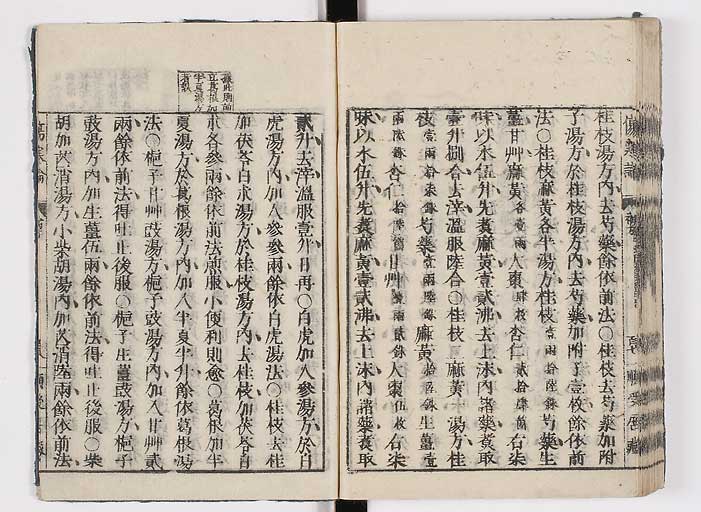 桂枝湯方內去芍藥餘依前法○桂枝去芍藥加附
子湯方於桂枝湯方內去芍藥加附子壹枚餘依前
法○桂枝麻黃各半湯方桂枝壹兩拾陸銖芍藥生
薑甘艸麻黃各壹兩大棗肆枚杏仁貳拾肆箇右柒
味以水伍升先煑麻黃壹貳沸去上沫內諸藥煑取
壹升捌合去滓溫服陸合○桂枝二麻黃一湯方桂
枝壹兩拾柒銖芍藥壹兩陸銖麻黃拾陸銖生薑壹
兩陸銖杏仁拾陸箇甘艸壹兩貳銖大棗伍枚右柒
味以水伍升先煑麻黃壹貳沸去上沫內諸藥煑取
貳升去滓溫服壹升日再○白虎加人參湯方於白
虎湯方內加人參參兩餘依白虎湯法○桂枝去桂
加茯苓白朮湯方於桂枝湯方內去桂枝加茯苓白
朮各參兩餘依前法煎服小便利則愈○葛根加半
夏湯方於葛根湯方內加入半夏半升餘依葛根湯
法○梔子甘艸豉湯方梔子豉湯方內加入甘艸貳
兩餘依前法得吐止後服○梔子生薑豉湯方梔子
豉湯方內加生薑伍兩餘依前法得吐止後服○柴
胡加芒消湯方小柴胡湯方內加芒消陸兩餘依前法